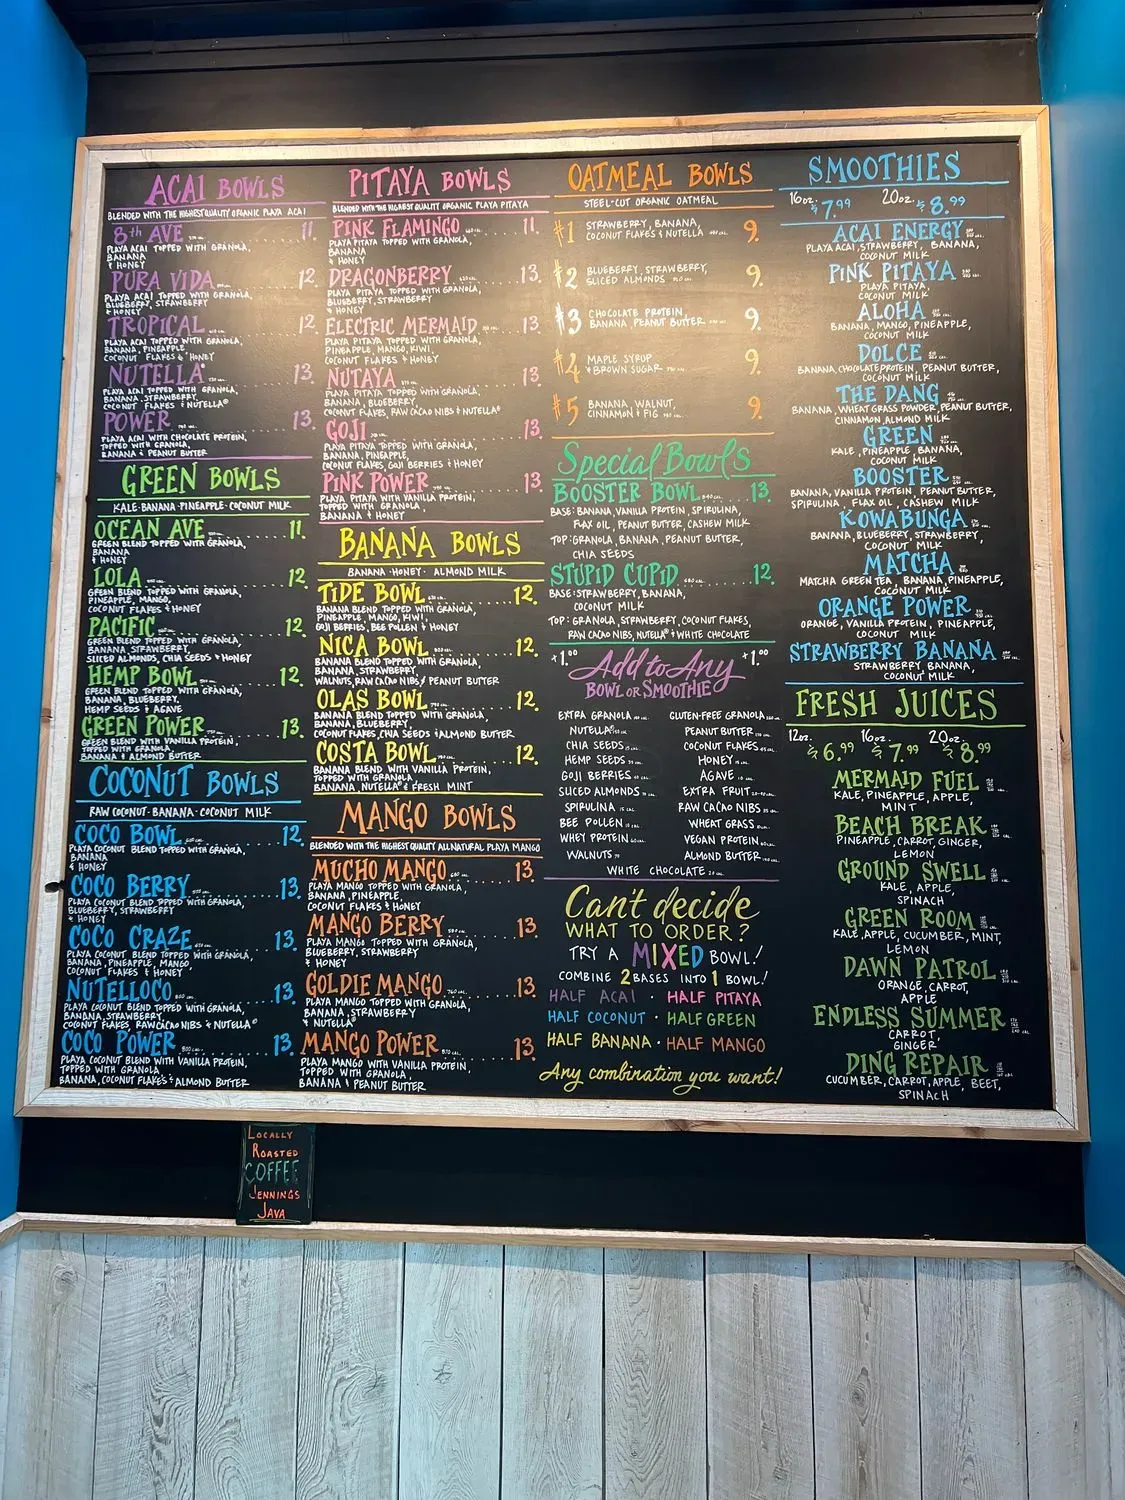 ACAI BOWLS
BLENDED WITH THE HIGHEST QUALITY ORGANIC PLAYA ACAI
8th AVE 11.
PLAYA ACAI TOPPED WITH GRANOLA,
BANANA
& HONEY
PURA VIDA 12.
PLAYA ACAI TOPPED WITH GRANOLA,
BLUEBERRY, STRAWBERRY
& HONEY
TROPICAL 12.
PLAYA ACAI TOPPED WITH GRANOLA,
BANANA, PINEAPPLE
COCONUT FLAKES & HONEY
NUTELLA® 13.
PLAYA ACAI TOPPED WITH GRANOLA,
BANANA, STRAWBERRY,
COCONUT FLAKES & NUTELLA®
POWER 13.
PLAYA ACAI WITH CHOCOLATE PROTEIN,
TOPPED WITH GRANOLA,
BANANA & PEANUT BUTTER
GREEN BOWLS
KALE·BANANA·PINEAPPLE·COCONUT MILK
OCEAN AVE 11.
GREEN BLEND TOPPED WITH GRANOLA,
BANANA
& HONEY
LOLA 12.
GREEN BLEND TOPPED WITH GRANOLA,
PINEAPPLE, MANGO,
COCONUT FLAKES & HONEY
PACIFIC 12.
GREEN BLEND TOPPED WITH GRANOLA,
BANANA, STRAWBERRY,
SLICED ALMONDS, CHIA SEEDS & HONEY
HEMP BOWL 12.
GREEN BLEND TOPPED WITH GRANOLA,
BANANA, BLUEBERRY,
HEMP SEEDS & AGAVE
GREEN POWER 13.
GREEN BLEND WITH VANILLA PROTEIN,
TOPPED WITH GRANOLA,
BANANA & ALMOND BUTTER
COCONUT BOWLS
RAW COCONUT·BANANA·COCONUT MILK
COCO BOWL 12.
PLAYA COCONUT BLEND TOPPED WITH GRANOLA,
BANANA
& HONEY
COCO BERRY 13.
PLAYA COCONUT BLEND TOPPED WITH GRANOLA,
BLUEBERRY, STRAWBERRY
& HONEY
COCO CRAZE 13.
PLAYA COCONUT BLEND TOPPED WITH GRANOLA,
BANANA, PINEAPPLE, MANGO,
COCONUT FLAKES & HONEY
NUTELLOCO 13.
PLAYA COCONUT BLEND TOPPED WITH GRANOLA,
BANANA, STRAWBERRY,
COCONUT FLAKES, RAW CACAO NIBS & NUTELLA®
COCO POWER 13.
PLAYA COCONUT BLEND WITH VANILLA PROTEIN,
TOPPED WITH GRANOLA
BANANA, COCONUT FLAKES & ALMOND BUTTER
PITAYA BOWLS
BLENDED WITH THE HIGHEST QUALITY ORGANIC PLAYA PITAYA
PINK FLAMINGO 11.
PLAYA PITAYA TOPPED WITH GRANOLA,
BANANA
& HONEY
DRAGONBERRY 13.
PLAYA PITAYA TOPPED WITH GRANOLA,
BLUEBERRY, STRAWBERRY
& HONEY
ELECTRIC MERMAID 13.
PLAYA PITAYA TOPPED WITH GRANOLA,
PINEAPPLE, MANGO, KIWI,
COCONUT FLAKES & HONEY
NUTAYA 13.
PLAYA PITAYA TOPPED WITH GRANOLA,
BANANA, BLUEBERRY,
COCONUT FLAKES, RAW CACAO NIBS & NUTELLA®
GOJI 13.
PLAYA PITAYA TOPPED WITH GRANOLA,
BANANA, PINEAPPLE,
COCONUT FLAKES, GOJI BERRIES & HONEY
PINK POWER 13.
PLAYA PITAYA WITH VANILLA PROTEIN,
TOPPED WITH GRANOLA,
BANANA & HONEY
BANANA BOWLS
BANANA·HONEY·ALMOND MILK
TIDE BOWL 12.
BANANA BLEND TOPPED WITH GRANOLA,
PINEAPPLE, MANGO, KIWI,
GOJI BERRIES, BEE POLLEN & HONEY
NICA BOWL 12.
BANANA BLEND TOPPED WITH GRANOLA,
BANANA, STRAWBERRY,
WALNUTS, RAW CACAO NIBS & PEANUT BUTTER
OLAS BOWL 12.
BANANA BLEND TOPPED WITH GRANOLA,
BANANA, BLUEBERRY,
COCONUT FLAKES, CHIA SEEDS & ALMOND BUTTER
COSTA BOWL 12.
BANANA BLEND WITH VANILLA PROTEIN,
TOPPED WITH GRANOLA,
BANANA, NUTELLA® & FRESH MINT
MANGO BOWLS
BLENDED WITH THE HIGHEST QUALITY ALL NATURAL PLAYA MANGO
MUCHO MANGO 13.
PLAYA MANGO TOPPED WITH GRANOLA,
BANANA, PINEAPPLE,
COCONUT FLAKES & HONEY
MANGO BERRY 13.
PLAYA MANGO TOPPED WITH GRANOLA,
BLUEBERRY, STRAWBERRY
& HONEY
GOLDIE MANGO 13.
PLAYA MANGO TOPPED WITH GRANOLA,
BANANA, STRAWBERRY
& NUTELLA®
MANGO POWER 13.
PLAYA MANGO WITH VANILLA PROTEIN,
TOPPED WITH GRANOLA,
BANANA & PEANUT BUTTER
OATMEAL BOWLS
STEEL-CUT ORGANIC OATMEAL
#1 STRAWBERRY, BANANA, 9.
COCONUT FLAKES & NUTELLA
#2 BLUEBERRY, STRAWBERRY, 9.
SLICED ALMONDS
#3 CHOCOLATE PROTEIN, 9.
BANANA, PEANUT BUTTER
#4 MAPLE SYRUP 9.
& BROWN SUGAR
#5 BANANA, WALNUT, 9.
CINNAMON & FIG
Special Bowls
BOOSTER BOWL 13.
BASE: BANANA, VANILLA PROTEIN, SPIRULINA,
FLAX OIL, PEANUT BUTTER, CASHEW MILK
TOP: GRANOLA, BANANA, PEANUT BUTTER,
CHIA SEEDS
STUPID CUPID 12.
BASE: STRAWBERRY, BANANA,
COCONUT MILK
TOP: GRANOLA, STRAWBERRY, COCONUT FLAKES,
RAW CACAO NIBS, NUTELLA® & WHITE CHOCOLATE
+1.00 Add to Any +1.00
BOWL OR SMOOTHIE
EXTRA GRANOLA GLUTEN-FREE GRANOLA
NUTELLA® PEANUT BUTTER
CHIA SEEDS COCONUT FLAKES
HEMP SEEDS HONEY
GOJI BERRIES AGAVE
SLICED ALMONDS EXTRA FRUIT
SPIRULINA RAW CACAO NIBS
BEE POLLEN WHEAT GRASS
WHEY PROTEIN VEGAN PROTEIN
WALNUTS ALMOND BUTTER
WHITE CHOCOLATE
Can't decide
WHAT TO ORDER?
TRY A MIXED BOWL!
COMBINE 2 BASES INTO 1 BOWL!
HALF ACAI · HALF PITAYA
HALF COCONUT · HALF GREEN
HALF BANANA · HALF MANGO
Any combination you want!
SMOOTHIES
16oz. $7.99 20oz. $8.99
ACAI ENERGY
PLAYA ACAI, STRAWBERRY, BANANA,
COCONUT MILK
PINK PITAYA
PLAYA PITAYA,
COCONUT MILK
ALOHA
BANANA, MANGO, PINEAPPLE,
COCONUT MILK
DOLCE
BANANA, CHOCOLATE PROTEIN, PEANUT BUTTER,
COCONUT MILK
THE DANG
BANANA, WHEAT GRASS POWDER, PEANUT BUTTER,
CINNAMON, ALMOND MILK
GREEN
KALE, PINEAPPLE, BANANA,
COCONUT MILK
BOOSTER
BANANA, VANILLA PROTEIN, PEANUT BUTTER,
SPIRULINA, FLAX OIL, CASHEW MILK
KOWABUNGA
BANANA, BLUEBERRY, STRAWBERRY,
COCONUT MILK
MATCHA
MATCHA GREEN TEA, BANANA, PINEAPPLE,
COCONUT MILK
ORANGE POWER
ORANGE, VANILLA PROTEIN, PINEAPPLE,
COCONUT MILK
STRAWBERRY BANANA
STRAWBERRY, BANANA,
COCONUT MILK
FRESH JUICES
12oz. $6.99 16oz. $7.99 20oz. $8.99
MERMAID FUEL
KALE, PINEAPPLE, APPLE,
MINT
BEACH BREAK
PINEAPPLE, CARROT, GINGER,
LEMON
GROUND SWELL
KALE, APPLE,
SPINACH
GREEN ROOM
KALE, APPLE, CUCUMBER, MINT,
LEMON
DAWN PATROL
ORANGE, CARROT,
APPLE
ENDLESS SUMMER
CARROT,
GINGER
DING REPAIR
CUCUMBER, CARROT, APPLE, BEET,
SPINACH
LOCALLY
ROASTED
COFFEE
JENNINGS
JAVA